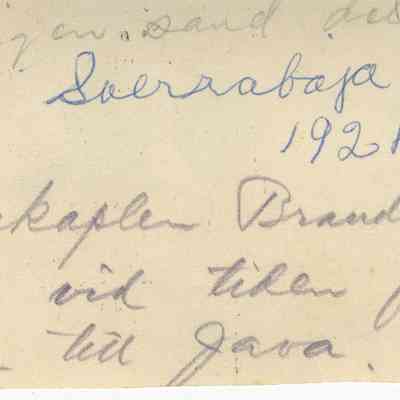 igen. sand des
Soerrabaja
1921
kaplen Brand
vid tiden f
till Java.